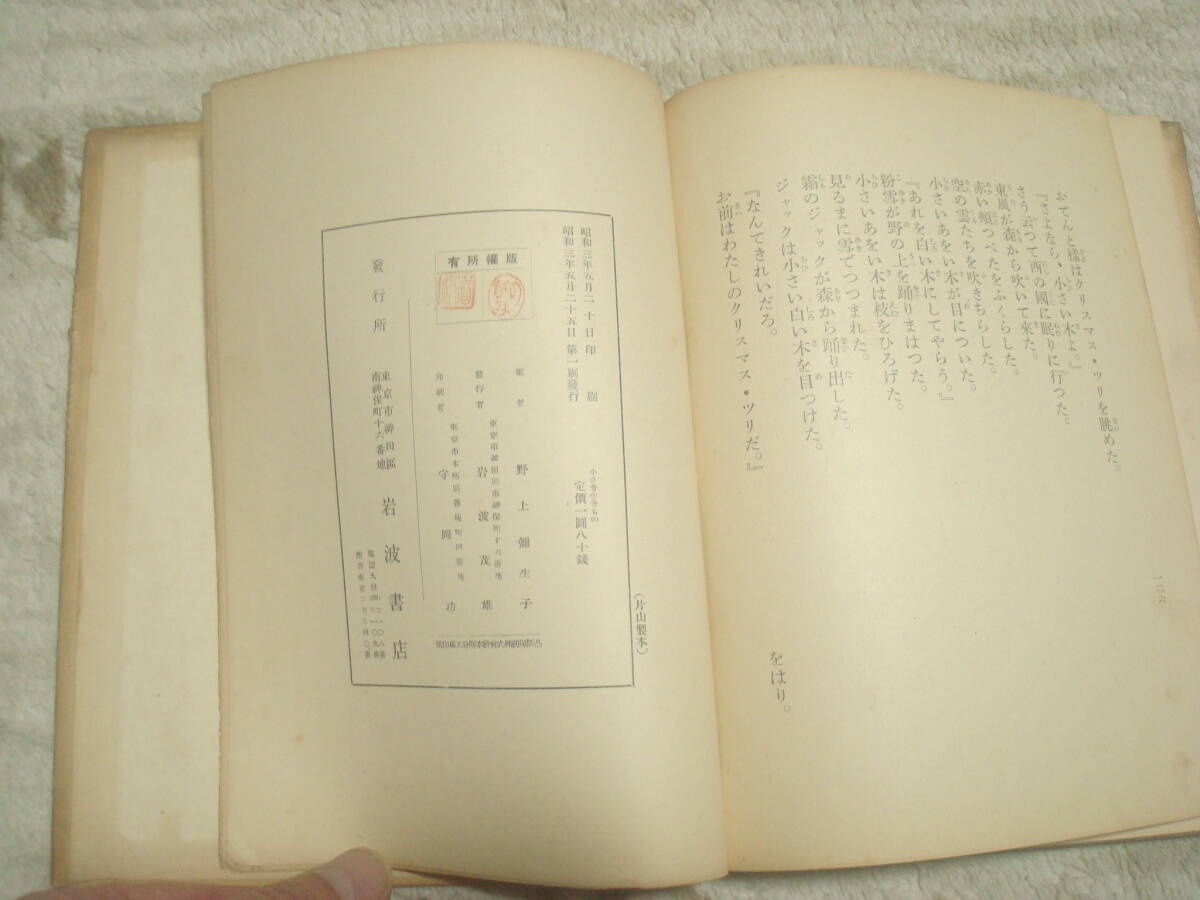 おてんと様はクリスマス・ツリを眺めた。
『さよなら、小さい木よ。』
さう云つて西の國に眠りに行つた。
東風が森から吹いて来た。
赤い頬つぺたをふくらした。
空の雲たちを吹きちらした。
小さいあをい木が目についた。
『あれを白い木にしてやらう。』
粉雪が野の上を踊りまはつた。
小さいあをい木は枝をひろげた。
見るまに雪でつつまれた。
霜のジャックが森から踊り出した。
ジャックは小さい白い木を目つけた。
『なんてきれいだろ。
お前はわたしのクリスマス・ツリだ。』
をはり。
(片山製本)
定價一圓八十錢
昭和三年五月二十日印刷
昭和三年五月二十五日第一刷發行
版權所有
編者 野上彌生子
東京市神田區南神保町十六番地
發行者 岩波茂雄
印刷者 守岡功
發行所
東京市神田區
南神保町十六番地
岩波書店